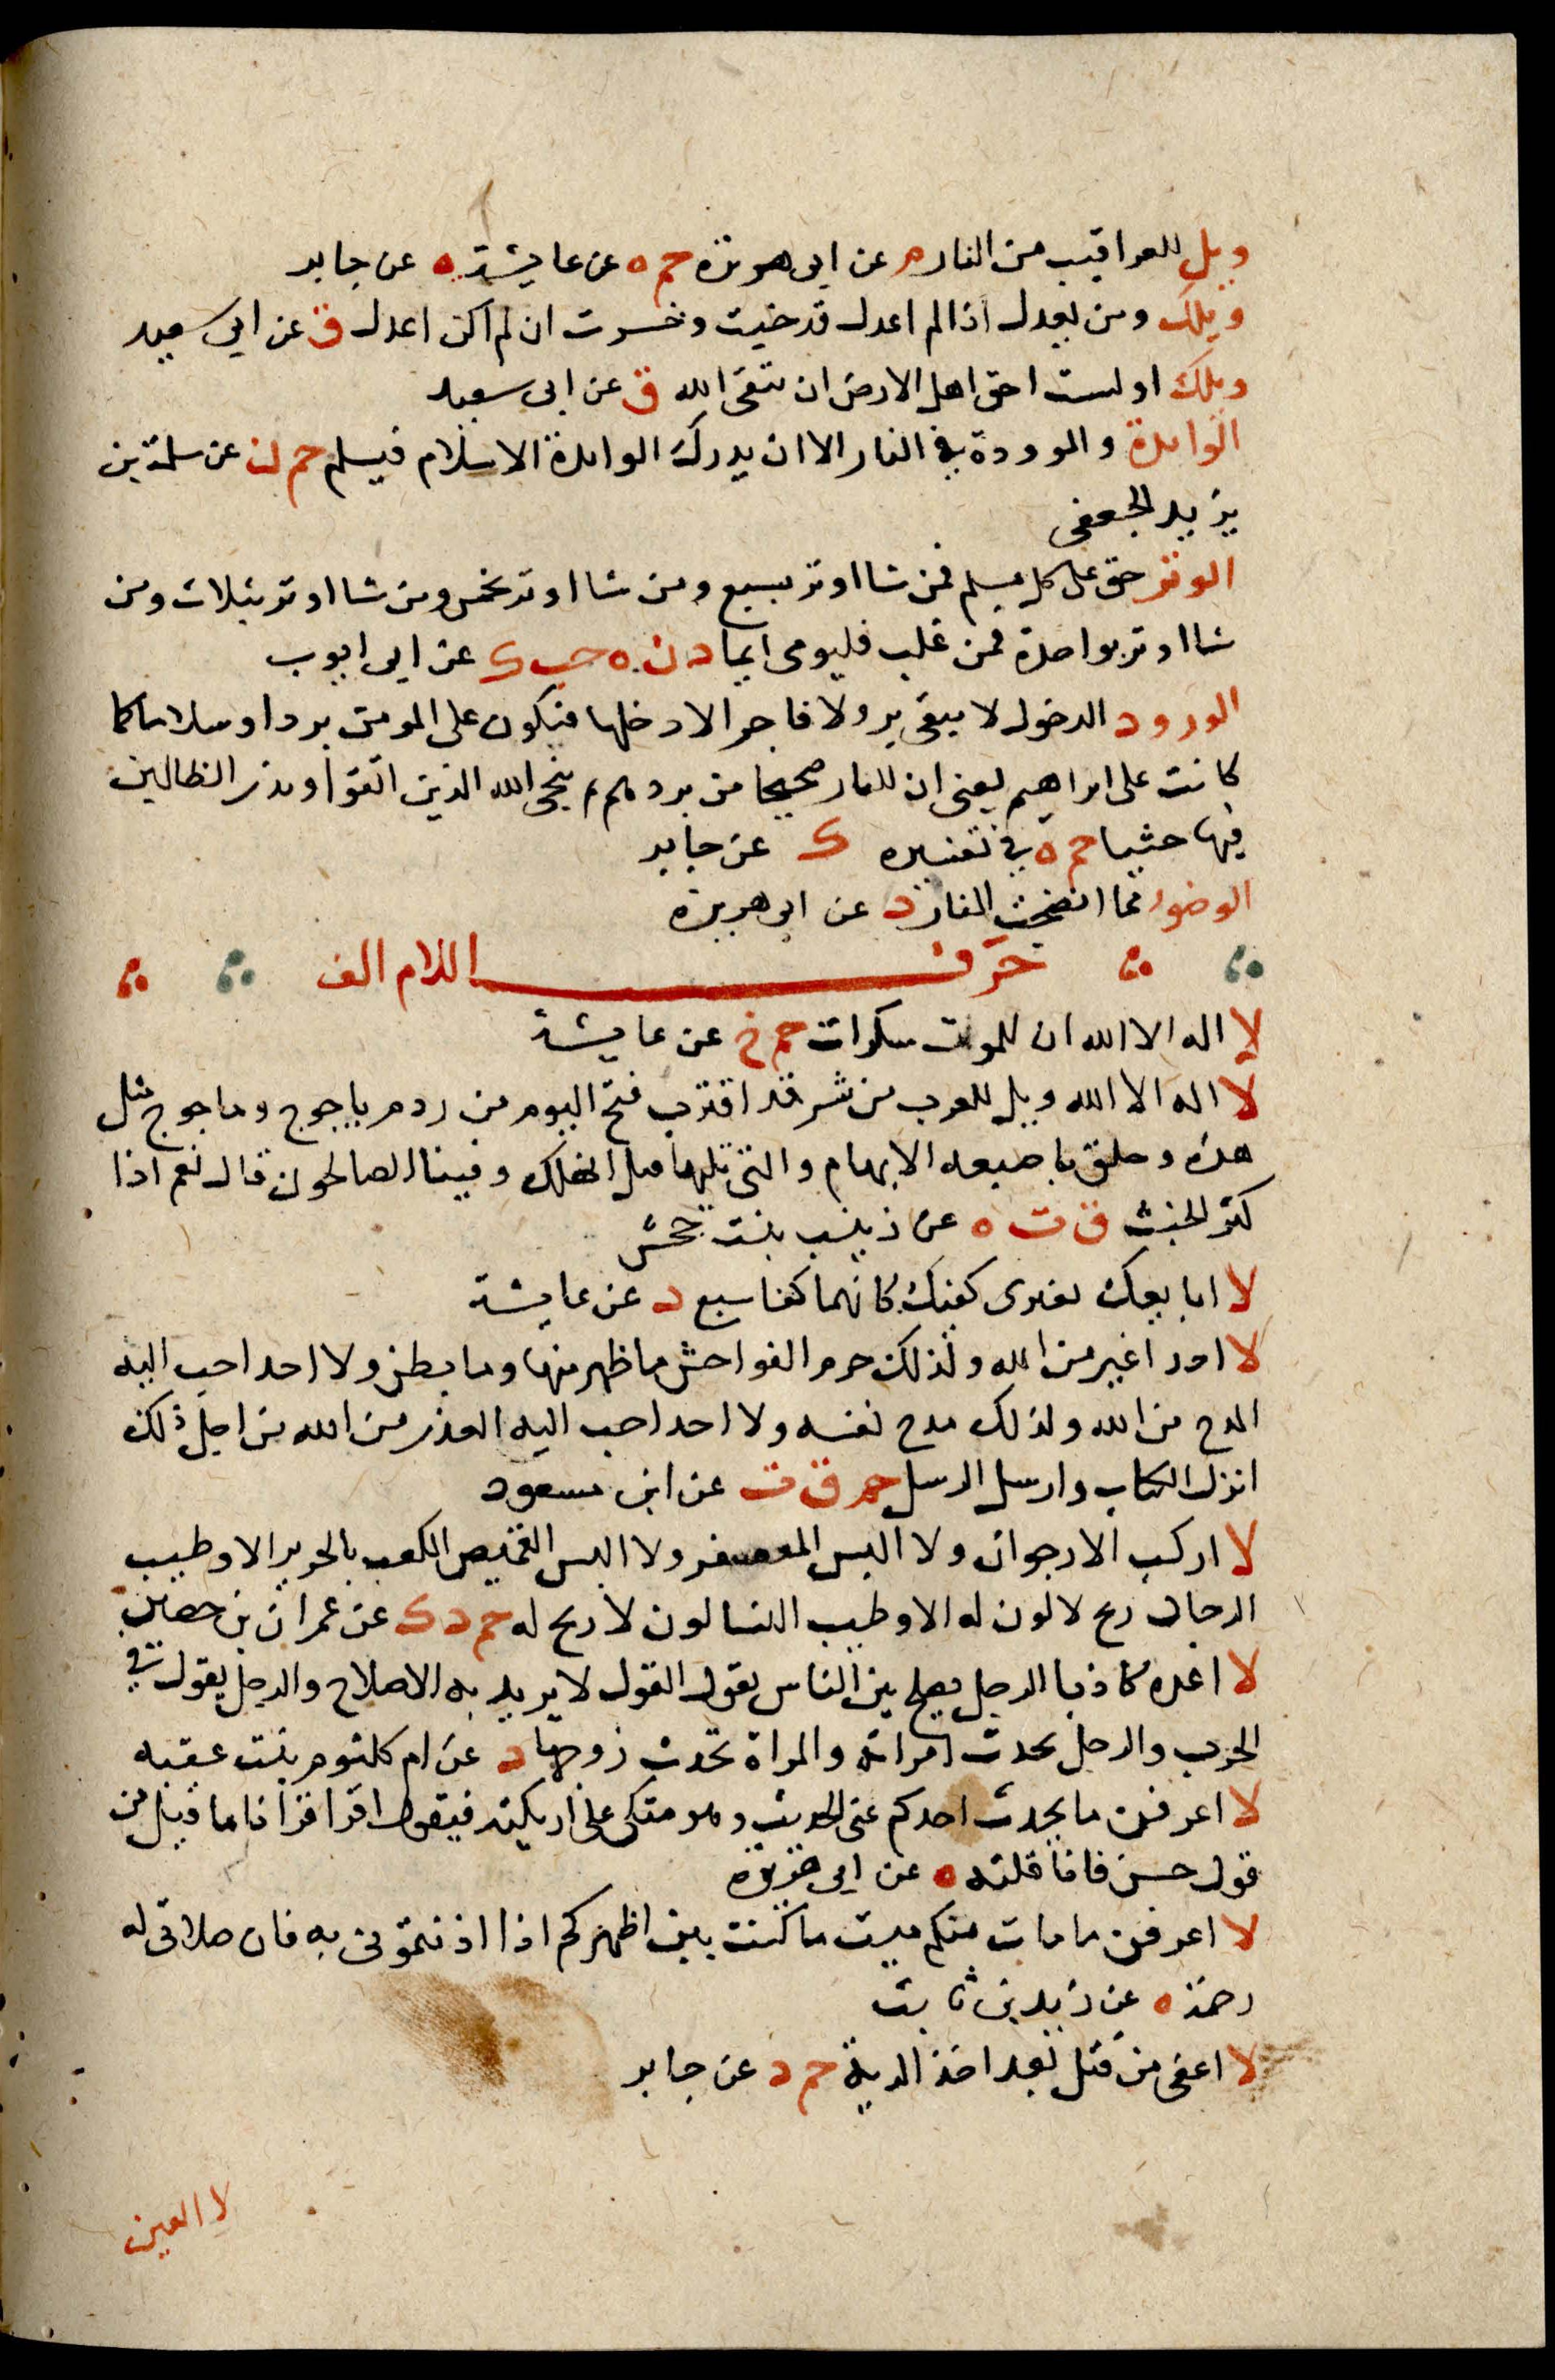 ويل للعراقيب من النار م عن ابى هريرة حم ه عن عايشة ه عن جابر
ويلك ومن يعدل اذا لم اعدل قد خبت وخسرت ان لم اكن اعدل ق عن ابى سعيد
ويلك اولست احق اهل الارض ان يتقى الله ق عن ابى سعيد
الوائدة والموودة فى النار الا ان يدرك الوائدة الاسلام فيسلم حم ن عن سلمة بن
يزيد الجعفى
الوتر حق على كل مسلم فمن شا اوتر بسبع ومن شا اوتر بخمس ومن شا اوتر بثلاث ومن
شا اوتر بواحدة فمن غلب فليومى ايما د ن ه حب ك عن ابى ايوب
الورود الدخول لا يبقى بر ولا فاجر الا دخلها فيكون على المومن بردا وسلاما كما
كانت على ابراهيم يعنى ان للنار ضجيجا من بردهم ثم ينجى الله الذين اتقوا ويذر الظالمين
فيها جثيا حم ه فى تفسيره ك عن جابر
الوضوء مما انضجت النار د عن ابى هريرة
حرف اللام الف
لا اله الا الله ان للموت سكرات حم خ عن عايشة
لا اله الا الله ويل للعرب من شر قد اقترب فتح اليوم من ردم ياجوج وماجوج مثل
هذه وحلق باصبعه الابهام والتى تليها قيل انهلك وفينا الصالحون قال نعم اذا
كثر الخبث ق ت ه عن زينب بنت جحش
لا ابايعك تغيرى كفيك كانهما كفا سبع د عن عايشة
لا احد اغير من الله ولذلك حرم الفواحش ما ظهر منها وما بطن ولا احد احب اليه
المدح من الله ولذلك مدح نفسه ولا احد احب اليه العذر من الله من اجل ذلك
انزل الكتاب وارسل الرسل حم ق ت عن ابن مسعود
لا اركب الارجوان ولا البس المعصفر ولا البس القميص المكعب بالحرير الا وطيب
الرجال ريح لا لون له الا وطيب النسا لون لا ريح له حم د ك عن عمران بن حصين
لا اعده كاذبا الرجل يصلح بين الناس يقول القول لا يريد به الا الاصلاح والرجل يقول فى
الحرب والرجل يحدث امراته والمراة تحدث زوجها د عن ام كلثوم بنت عقبه
لا اعرفن ما يحدث احدكم عنى الحديث وهو متكى على اريكته فيقول اقرا قرانا ما قيل من
قول حسن فانا قلته ه عن ابى هريرة
لا اعرفن ما مات منكم ميت ما كنت بين اظهركم اذا اذنتمونى به فان صلاتى له
رحمة ه عن زيد بن ثابت
لا اعفى من قتل بعد اخذ الدية حم د عن جابر
لا العين